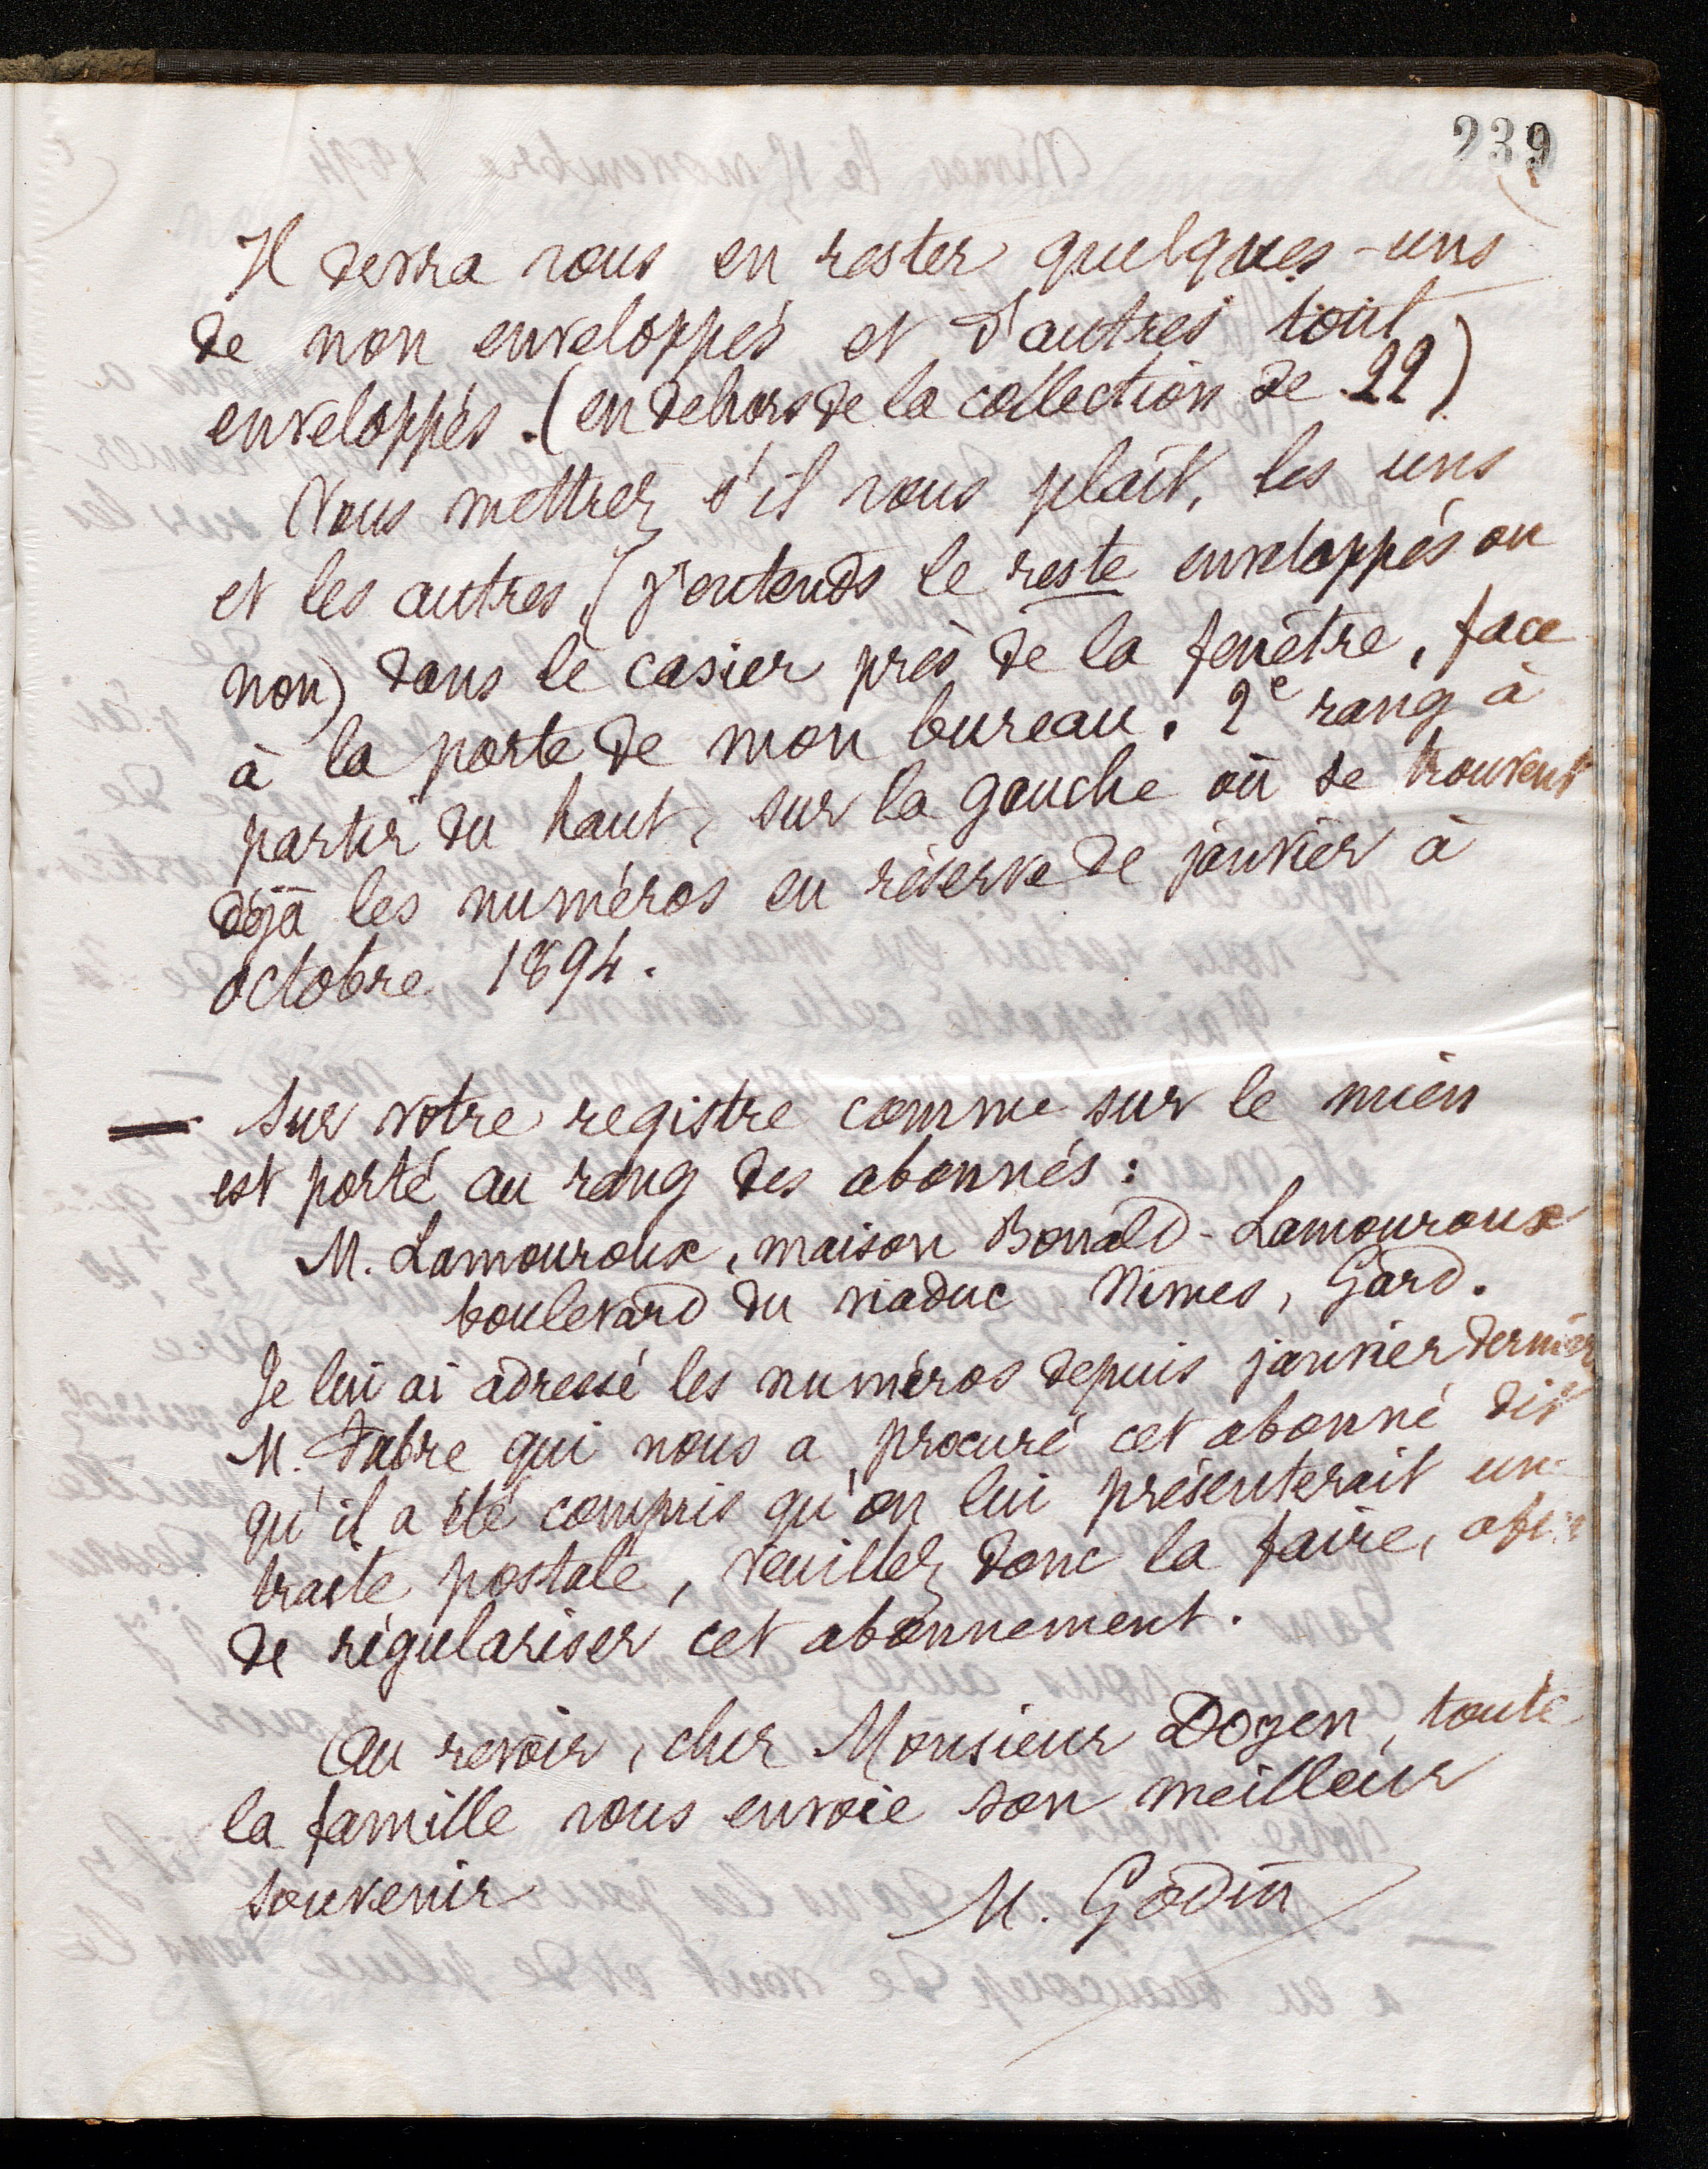 239
Il devra vous en rester quelques-uns
de non enveloppés et d'autres tout
enveloppés. (en dehors de la collection de 22)
Vous mettrez s'il vous plaît, les uns
et les autres, (j'entends le reste enveloppés ou
non) dans le casier près de la fenêtre, face
à la porte de mon bureau. 2e rang à
partir du haut, sur la gauche où se trouvent
déjà les numéros en réserve de janvier à
octobre 1894.
— Sur votre registre comme sur le mien
est porté au rang des abonnés :
M. Lamouroux, maison Bonald-Lamouroux
boulevard du viaduc Nîmes, Gard.
Je lui ai adressé les numéros depuis janvier dernier
M. Fabre qui nous a procuré cet abonné dit
qu'il a été compris qu'on lui présenterait une
traite postale, veuillez donc la faire, afin
de régulariser cet abonnement.
Au revoir, cher Monsieur Doyen, toute
la famille vous envoie son meilleur
souvenir
M. Godin